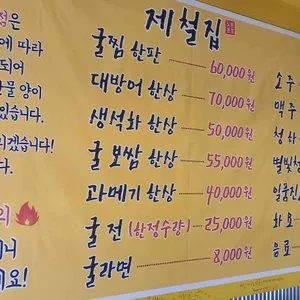 제철집
굴찜 한판 60,000원
대방어 한상 70,000원
생석화 한상 50,000원
굴 보쌈 한상 55,000원
과메기 한상 40,000원
굴 전 (한정수량) 25,000원
굴라면 8,000원
정은
에 따라
되어
물 양이
있습니다.
리겠습니다!
다.
의
어
세요!
소주
맥주
청하
별빛청
일품진
화요
음료